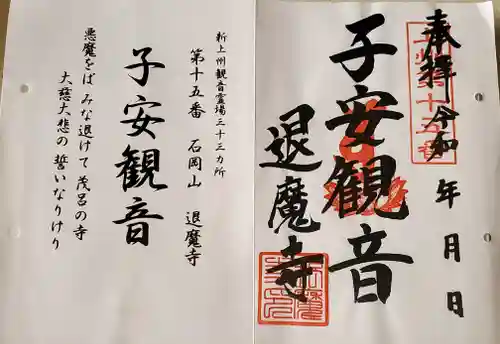 新上州観音霊場三十三カ所
第十五番 石岡山 退魔寺
子安観音
悪魔をば みな退けて 茂呂の寺
大慈大悲の 誓いなりけり
奉拝 令和 年 月 日
上州第十五番
子安観音
退魔寺